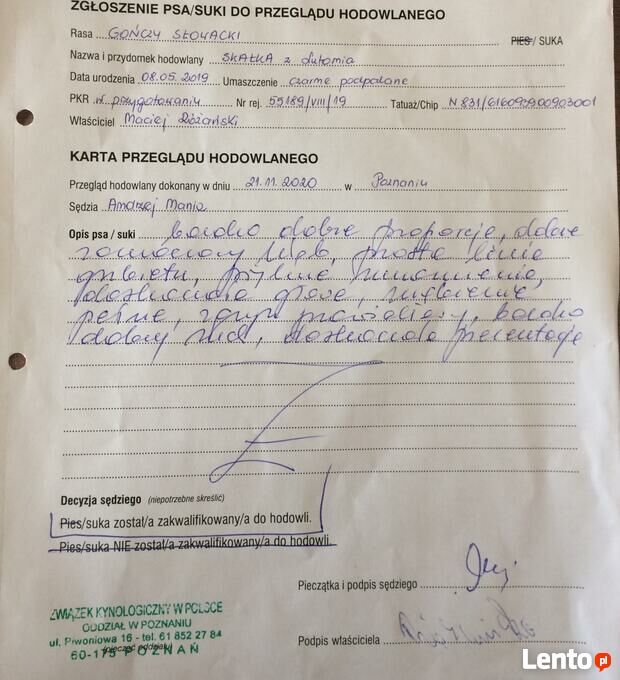 ZGŁOSZENIE PSA/SUKI DO PRZEGLĄDU HODOWLANEGO
Rasa GOŃCZY SŁOWACKI PIES/ SUKA
Nazwa i przydomek hodowlany SKAŁKA z Lutomia
Data urodzenia 08.05.2019 Umaszczenie czarne podpalane
PKR w przygotowaniu Nr rej. 55189/VIII/19 Tatuaż/Chip N831/616093900903001
Właściciel Maciej Różański
KARTA PRZEGLĄDU HODOWLANEGO
Przegląd hodowlany dokonany w dniu 21.11.2020 w Poznaniu
Sędzia Andrzej Mania
Opis psa / suki bardzo dobre proporcje, dobrze
prosta linia
grzbietu,
doskonała głowa, uzębienie
pełne, zgryz prawidłowy, bardzo
dobry ruch, doskonała prezentacja
Decyzja sędziego (niepotrzebne skreślić)
Pies/suka został/a zakwalifikowany/a do hodowli.
Pies/suka NIE został/a zakwalifikowany/a do hodowli.
Pieczątka i podpis sędziego
ZWIĄZEK KYNOLOGICZNY W POLSCE
ODDZIAŁ W POZNANIU
ul. Piwoniowa 16 - tel. 61 852 27 84
(pieczęć oddziału)
60-175 POZNAŃ
Podpis właściciela
Lento.pl